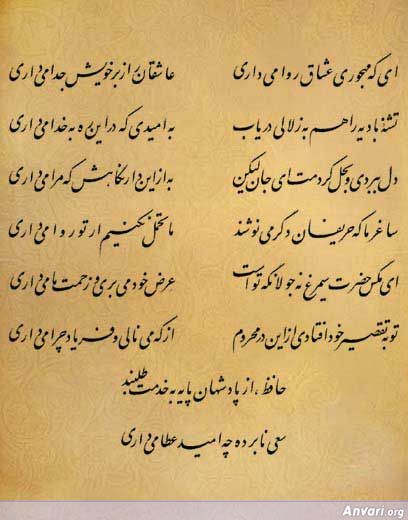 ای که مهجوری عشاق روا می داری عاشقان را ز بر خویش جدا می داری
تشنه بادیه را هم به زلالی دریاب به امیدی که در این ره به خدا می داری
دل ببردی و بحل کردمت ای جان لیکن به از این دار نگاهش که مرا می داری
ساغر ما که حریفان دگر می نوشند ما تحمل نکنیم ار تو روا می داری
ای مگس حضرت سیمرغ نه جولانگه تو است عرض خود می بری و زحمت ما می داری
تو به تقصیر خود افتادی از این در محروم از که می نالی و فریاد چرا می داری
حافظ، از پادشهان پایه به خدمت طلبند
سعی نابرده چه امید عطا می داری
Anvari.org